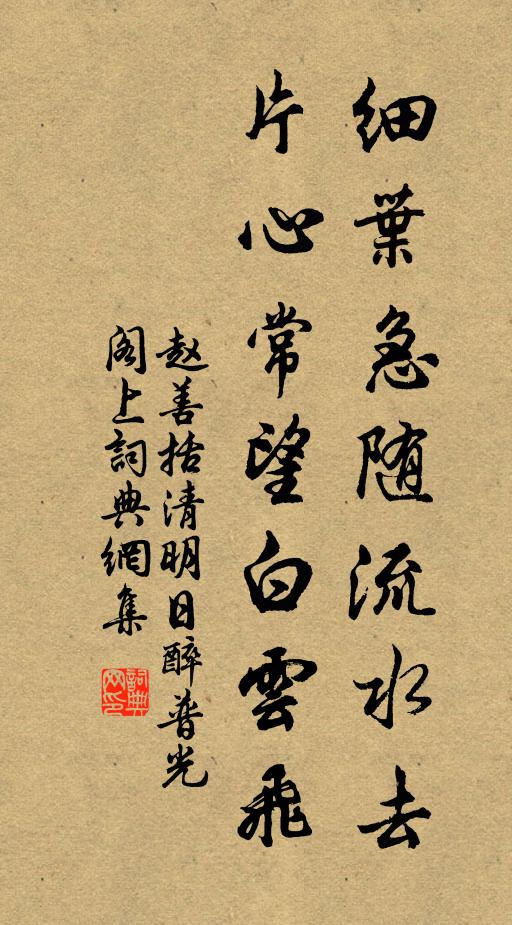 细葉急随流水去
片心常望白雲飛
赵善括清明日醉普光
阁上詞典網集
詞典网印